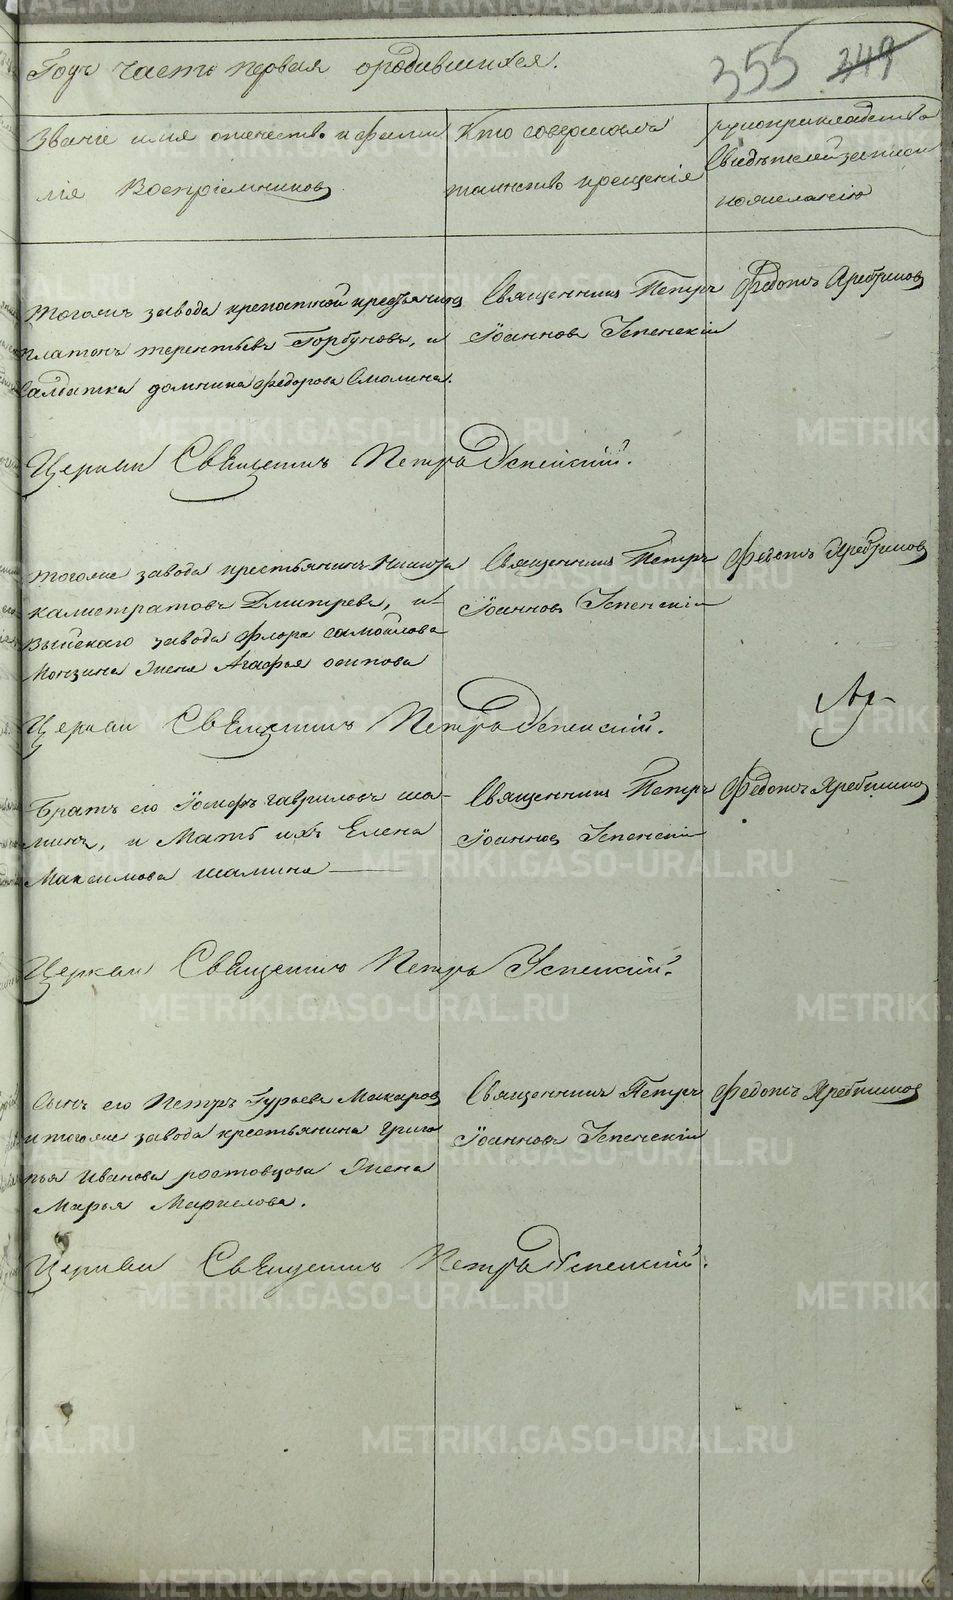 Годъ часть первая о родившихся.
355 349
Званіе имя отчество и фами
лія Воспріемниковъ
Кто совершалъ
таинство крещенія
рукоприкладство
свидѣтелей записи
по желанію
Тогожъ завода крепостной крестьянинъ
Платонъ терентьевъ Горбуновъ, и
Салдатка домника федорова Смолина.
Священникъ Петръ
Іоанновъ Успенскій
Федотъ
Церкви Священникъ Петръ Успенскій.
тогоже завода крестьянинъ Никита
калистратовъ Дмитревъ, и
Выйскаго завода Флора самойлова
жена Агафья осипова
Священникъ Петръ
Іоанновъ Успенскій
Федотъ
Церкви Священникъ Петръ Успенскій.
Братъ его Іосифъ гавриловъ ша-
минъ, и Мать ихъ Елена
Максимова шамина
Священникъ Петръ
Іоанновъ Успенскій
Федотъ
Церкви Священникъ Петръ Успенскій.
Сынъ его Петръ Гурьевъ Макаровъ
и тогоже завода крестьянина григо
рья Иванова ростовцова жена
Марья Маркелова.
Священникъ Петръ
Іоанновъ Успенскій
Федотъ
Церкви Священникъ Петръ Успенскій.
METRIKI.GASO-URAL.RU